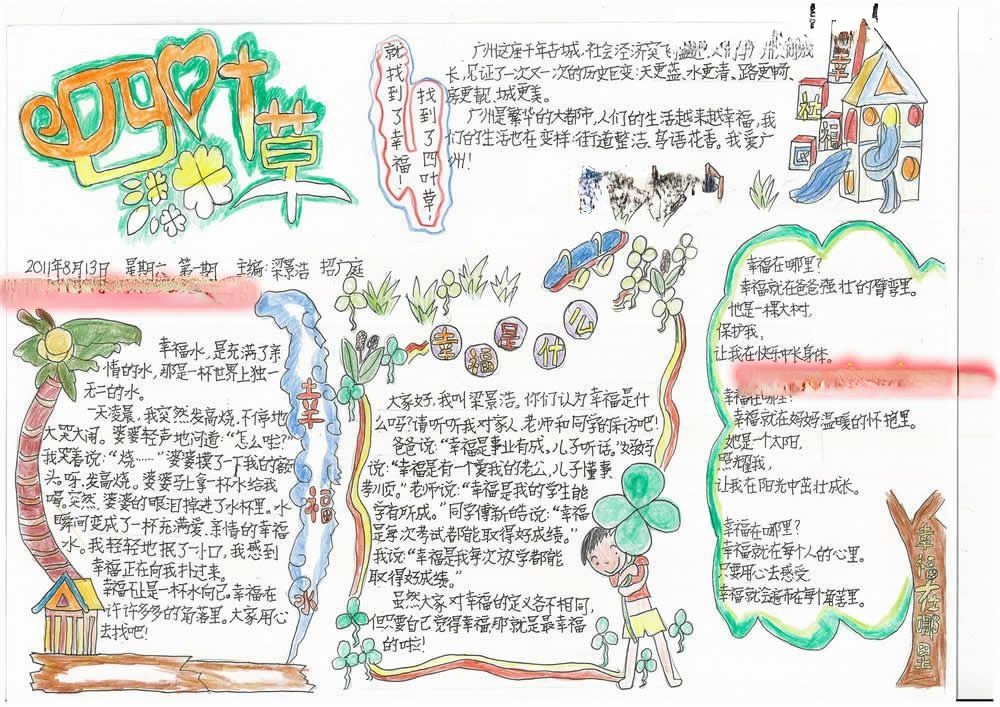 四叶草
找到了四叶草,
就找到了幸福!
广州这座千年古城,社会经济突飞
长,见证了一次又一次的历史巨变:天更蓝、水更清、路更畅、
房更靓、城更美。
广州是繁华的大都市,人们的生活越来越幸福,我
们的生活也在变样:街道整洁、鸟语花香。我爱广
州!
幸福社区
2011年8月13日 星期六 第一期 主编:梁景浩 招广庭
幸福水
幸福水,是充满了亲
情的水,那是一杯世界上独一
无二的水。
一天凌晨,我突然发高烧,不停地
大哭大闹。婆婆轻声地问道:“怎么啦?”
我哭着说:“烧……”婆婆摸了一下我的额
头,呀,发高烧。婆婆马上拿一杯水给我
喝。突然,婆婆的眼泪掉进了水杯里。水
瞬间变成了一杯充满爱、亲情的幸福
水。我轻轻地抿了一小口,我感到
幸福正在向我扑过来。
幸福不让是一杯水向已。幸福在
许许多多的角落里。大家用心
去找吧!
幸福是什么
大家好,我叫梁景浩。你们认为幸福是什
么吗?请听听我对家人、老师和同学的采访吧!
爸爸说:“幸福是事业有成,儿子听话。”妈妈
说:“幸福是有一个爱我的老公,儿子懂事
孝顺。”老师说:“幸福是我的学生能
学有所成。”同学傅新皓说:“幸福
是每次考试者都能取得好成绩。”
我说“幸福是我每次放学都能
取得好成绩。”
虽然大家对幸福的定义各不相同,
但只要自己觉得幸福,那就是最幸福
的啦!
幸福在哪里
幸福在哪里?
幸福就在爸爸强壮的臂弯里。
他是一棵大树,
保护我,
让我在快乐中
幸福在哪里?
幸福就在妈妈温暖的怀抱里。
她是一个太阳,
照耀我,
让我在阳光中茁壮成长。
幸福在哪里?
幸福就在每个人的心里。
只要用心去感受,
幸福就会遍布在每个角落里。